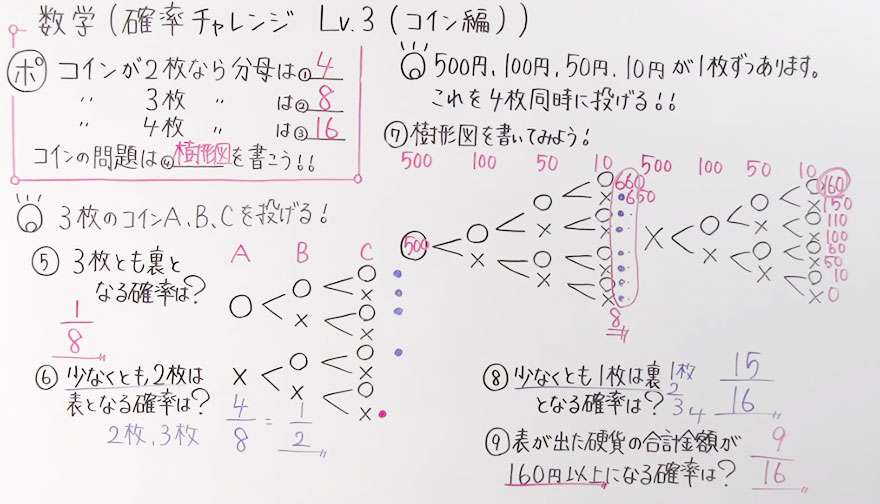 数学(確率チャレンジ Lv.3(コイン編))
ポ コインが2枚なら分母は① 4
〃 3枚 〃 は② 8
〃 4枚 〃 は③ 16
コインの問題は④樹形図を書こう!!
3枚のコインA、B、Cを投げる!
⑤ 3枚とも裏と
なる確率は?
1/8〃
A B C
○ < ○ < ○
×
× < ○
×
× < ○ < ○
×
× < ○
×
⑥ 少なくとも2枚は
表となる確率は?
2枚、3枚
4/8 = 1/2〃
500円、100円、50円、10円が1枚ずつあります。
これを4枚同時に投げる!!
⑦ 樹形図を書いてみよう!
500 100 50 10
500 < ○ < ○ < ○ 660
× 650
× < ○
×
× < ○ < ○
×
× < ○
×
8〃
500 100 50 10
× < ○ < ○ < ○ 160
× 150
× < ○ 110
× 100
× < ○ < ○ 60
× 50
× < ○ 10
× 0
⑧ 少なくとも1枚は裏
となる確率は?
1枚
2
3
4
15/16〃
⑨ 表が出た硬貨の合計金額が
160円以上になる確率は?
9/16〃